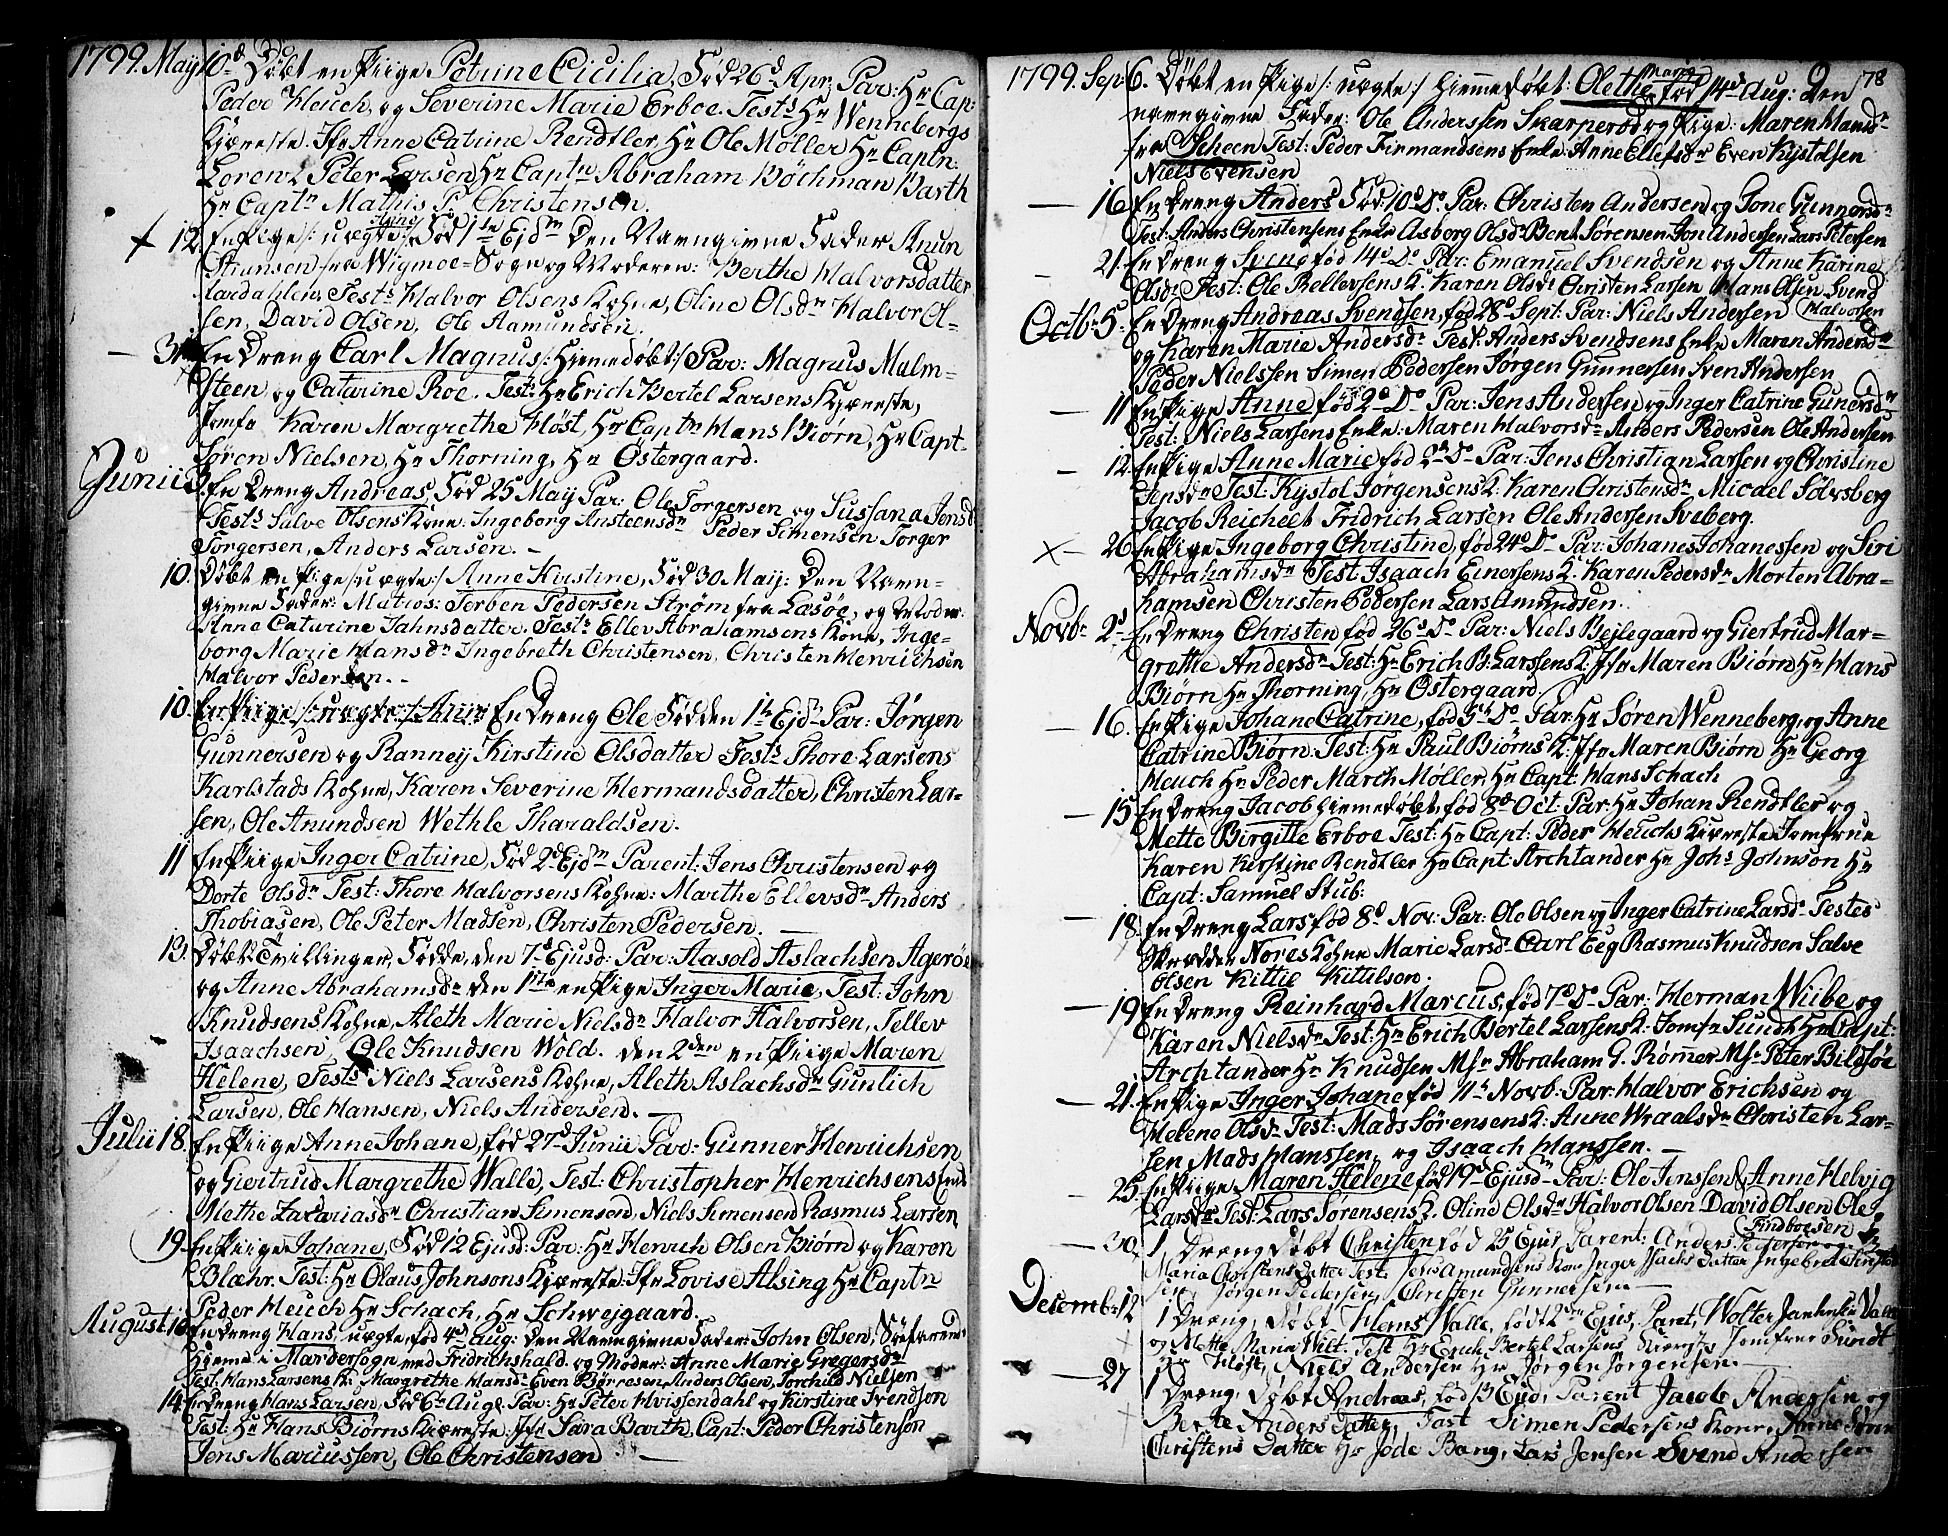 1799. May 10d Døbt en Piige Petrine Cicilia, Død 26d Apr: Par: Hr Cap:
Peder Heuch, og Severine Marie Erboe. Tests Hr Wennebergs
Kjæreste. Jfr Anne Catrine Rendtler, Hr Ole Møller Hr Captn:
Lorentz Peter Larsen, Hr Captn Abraham Bøchman Barth
Hr Captn Mathis P. Christensen.
12. En Piige /: uægte :/ Anne Død 1ste Ejdm Den Navngivne Fader Knun
fra Wigmoe-Sogn og Moderen: Berthe Halvorsdatter
Aardahlen, Tests Halvor Olsens Kohne, Oline Olsdr Halvor Ol-
sen, David Olsen, Ole Aamundsen.
31. En Dreng Carl Magnus /: Hjemedøbt :/ Par: Magnus Malm-
steen og Catarine Roe. Test: Hr Erich Bertel Larsens Kjæreste,
Jomfr Karen Margrethe Høst, Hr Captn Hans Biørn, Hr Capt-
Søren Nielsen, Hr Thorning, Hr Østergaard.
Junii 3. En Dreng Andreas, Død 25 May Par: Ole Torgersen og Sussana Jensd
Tests Salve Olsens Kone. Ingeborg Ansteensdr Peder Simensen Torger
Torgersen, Anders Larsen.
10. Døbt en Pige /: uægte :/ Anne Kirstine, Død 30 May: Den Navn-
givne Fader: Matros: Torben Pedersen Strøm fra Læsøe, og Moder:
Anne Catarine Jahnsdatter. Tests Ellev Abrahamsens Kone, Inge-
borg Marie Hansdr Ingebreth Christensen, Christen Henrichsen
Halvor Pedersen.
10. En Piige /: uægte :/ Anne En Dreng Ole Død den 1ste Ejdm Par: Jørgen
Gunnersen og Ranneij Kirstine Olsdatter Tests Thore Larsens
Karlstads Kohne, Karen Severine Hermandsdatter, Christen Lar-
sen, Ole Anundsen Wethle Tharaldsen.
11 En Piige Inger Catrine, Død 2d Ejdm Parent: Jens Christensen og
Dorte Olsdr Test: Thore Halvorsens Kohne: Marthe Ellevsdr Anders
Thobiasen, Ole Peter Madsen, Christen Pedersen.
13. Døbt Tvillinger, Fødde, den 7d Ejusd: Par: Aasold Aslachsen Agerøe
og Anne Abrahamsdr den 1ste en Piige Inger Marie, Test: John
Knudsens Kohne, Aleth Marie Nielsdr Halvor Halvorsen, Tellev
Isaachsen, Ole Knudsen Wold. den 2den en Piige Maren
Helene, Tests Niels Larsens Kohne, Aleth Aslachsdr Gunlich
Larsen, Ole Hansen, Niels Andersen.
Julii 18. En Piige Anne Johane, fød 27d Junii Par: Gunner Henrichsen
og Giertrud Margrethe Walle, Test: Christopher Henrichsens Enke
Methe Zacariasdr Christian Simonsen, Niels Simensen Rasmus Larsen
19. En Piige Johane, Død 12 Ejusd: Par: Hr Henrich Olsen Biørn og Karen
Blahr. Test: Hr Olaus Johnsons Kjæreste: Jfr Lovise Alsing Hr Captn
Peder Heuch Hr Schach, Hr Schweigaard.
August 10. En Dreng Hans, uægte fød 4d Aug: den Navngivne Fader: John Olsen, Søefarende
Hjeme i Mardersogn ved Fridrichshald og Moder: Anne Marie Gregersdr
Test. Hans Larsens K: Margrethe Hansdr Even Børresen Anders Olsen, Torchild Nielsen
14. En Dreng Hans Larsen, Død 6te Aug: Par: Hr Peter Hvissendahl og Kirstine Svendson
Test: Hr Hans Biørns Kjæreste: Jfr Sara Barth, Capt: Peder Christenson
Jens Marcussen, Ole Christensen
78
1799. Sept 6. Døbt en Pige /: uægte :/ Hjemedøbt: Olethe Maria fød 14d Aug: Den
navngivne Fader: Ole Anderssen Skarperød og Pige: Maren Hansdr
fra Scheen Test: Peder Firmandsens Enke: Anne Ellefsdr Even Kystolsen
Niels Evensen
16. En Dreng Anders Død: 10d Do. Par: Christen Andersen og Gone Gunnersdr
Test: Anders Christensens Enke Asborg Olsdr Bent Sørensen Jon Andersen Lars Petersen
21. En Dreng Svend fød 14d Do Par: Emanuel Svendsen og Anne Karine
Olsdr Test: Ole Rellevsens K. Karen Olsdr Christen Larsen Hans Olsen Svend
Halvorsen
Octbr 5. En Dreng Andreas Svendsen, fød 28d Sept: Par: Niels Andersen
og Karen Marie Andersdr Test: Anders Svendsens Enke Maren Andersdr
Peder Nielssen Simen Pedersen Jørgen Gunnersen Sven Andersen
11 En Pige Anne fød 2d Do Par: Jens Andersen og Inger Catrine Gunersdr
Test: Niels Larsens Enke: Maren Halvorsdr Anders Pedersen Ole Andersen
12. En Pige Anne Marie fød Do Par: Jens Christian Larsen og Christine
Jensdr Test: Kystol Jørgensens K: Karen Christensdr Micael Sølvsberg
Jacob Reichelt Fridrich Larsen Ole Andersen Sveberg.
26 En Pige Ingeborg Christine, fød 24d Do Par: Johanes Johanessen og Siri
Abrahamsdr Test: Isaach Einersens K. Karen Pedersdr Morten Abra-
hamsen Christen Pedersen Lars Amundsen.
Novbr 2d En Dreng Christen fød 26d Do Par: Niels Bejlegaard og Giertrud Mar-
grethe Andersdr Test: Hr Erich B. Larssens K: Jfr Maren Biørn Hr Hans
Biørn Hr Thorning, Hr Østergaard.
16. En Pige Johane Catrine, fød 5te Do Par: Hr Søren Wenneberg, og Anne
Catrine Biørn: Test: Hr Paul Biørns K: Jfr Maren Biørn Hr Georg
Heuch Hr Peder March Møller, Hr Capt: Hans Schach
15 En Dreng Jacob Hjemedøbt, fød 8d Oct: Par: Hr Johan Rendtler og
Mette Birgitte Erboe Test: Hr Capt: Peder Heuchs Kjæreste Jomfrue
Karen Kirstine Rendtler Hr Capt: Archtander Hr Johs Johnson Hr
Capt: Samuel Stub:
18 En Dreng Lars fød 8d Nov: Par: Ole Olsen og Inger Catrine Larsdr Testes
Skredder Nores Kohne Marie Larsdr Carl Eeg Rasmus Knudsen Salve
Olsen Kittil Kittilson.
19 En Dreng Reinhard Marcus, fød 7d Do Par: Herman Wiibe og
Karen Nielsdr Test: Hr Erich Bertel Larsens K: Jomfr Sundt Hr Capt:
Archtander Hr Knudsen Msr Abraham G. Rømer Msr Peter Bildsøe
21. En Pige Inger Johane fød 11te Novb: Par: Halvor Erichsen og
Helene Olsdr Test: Mads Sørensens K: Anne Wraalsdr Christen Lar-
sen Mads Hanssen, og Isaach Hanssen.
25 En Piige Maren Helene, fød 19d Ejusdm Par: Ole Jenssen & Anne Helvig
Larsdr Test: Lars Sørensens K. Oline Olsdr Halvor Olsen David Olsen Ole
Findboesen
30. 1 Dreng Døbt Christen fød 25 Ejus Parent: Anders Pettersen og
Maria Christens Datter Test: Jens Amundsens Kone Inger Isachs Datter Ingebret
sen, Jørgen Pedersen, Christen Gunnersen
Decembr 12 1 Dreng, Døbt Hans Walle, født 2den Ejus, Parent, Wolter Valle
og Mette Maria Wilt. Test Hr Erich Bertel Larsens Kjæreste Jomfrue Sundt
Hr Høst, Niels Andersen Hr Jørgen Jørgensen.
27 1 Dreng, Døbt Andreas, fød Ejud, Parent Jacob Andersen og
Berte Anders Datter, Test Simen Pedersens Kone, Anne
Christens Datter Hr Jøde Bang, Lars Jensen Svend Andersen